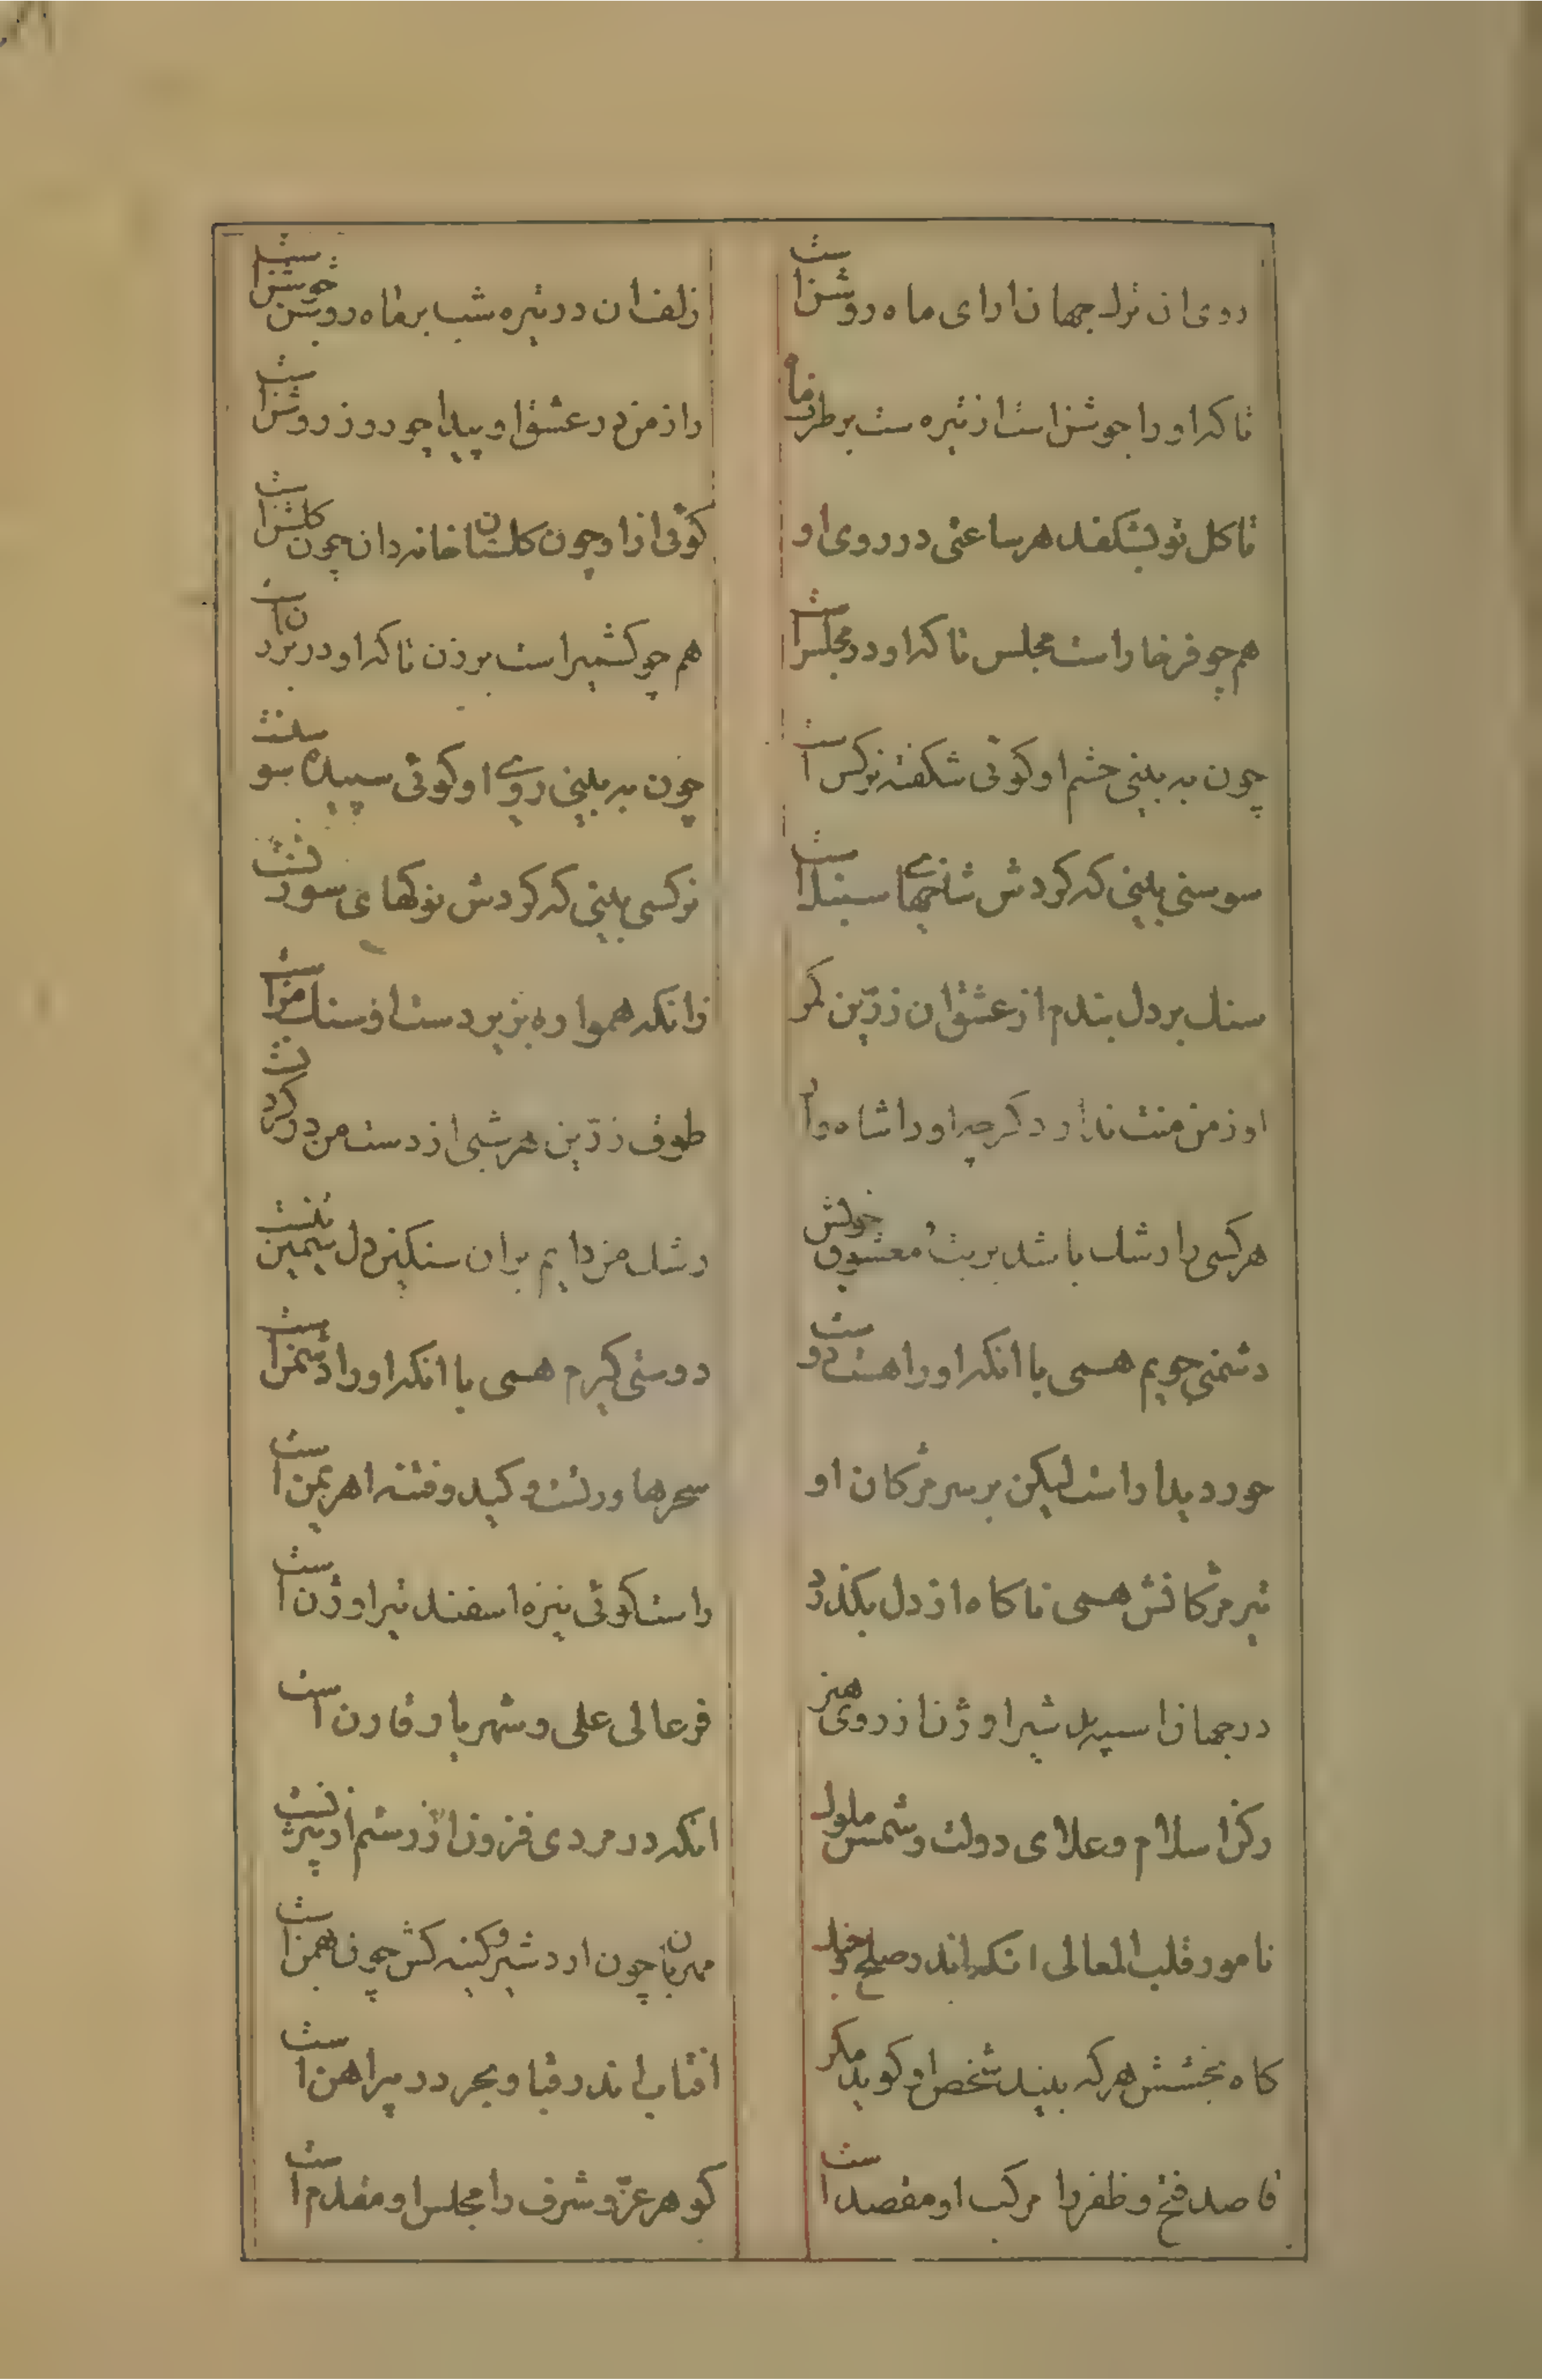 روی ان ترک جهان ارای ماه روشن است
زلف ان در تیره شب بر ماه روشن جوشن است
تا که او را جوشن است از تیره شب بر طرف ماه
راز من در عشق او پیدا چو روز روشن است
تا کل نو بشکفد هر ساعتی در روی او
کوئی از او چون کلستان خانه ردان چون کلشن است
هم چو فرخار است مجلس تا که او در مجلس است
هم چو کشمیر است برزن تا که او در برزن است
چون به بینی چشم او کوئی شکفته نرکس است
چون به بینی روی او کوئی سپیده سوسن است
سوسنی بینی که کردش شاخهای سنبل است
نرکسی بینی که کردش نوکهای سوزن است
سنک بر دل بندم از عشق ان زرین کمر
زانکه همواره بزیر دست او سنک من است
او ز من منت ندارد کرچه او را شاه وار
طوق زرین هر شبی از دست من در کردن است
هر کسی را رشک باشد بر بت معشوق خویش
رشک من دایم بران سنکین دل سیمین تنست
دشمنی جویم همی با انکه او را هست دوست
دوستی کیرم همی با انکه او را دشمن است
حور دیدار است لیکن بر سر مژکان او
سحر هاروتست و کید و فتنه اهریمن است
تیر مژکانش همی ناکاه از دل بکذرد
راست کوئی نیزه اسفندیر اوژن است
در جهان ان اسپهبد شیر اوژن از روی هنر
فر عالی علی و شهریار قارن است
رکن اسلام و علای دولت و شمس ملوک
انکه در مردی فزون از رستم و از بیژنست
نامور قلب المعالی انکه اندر صلح و جنک
مهربان چون اردشیر و کینه کش چون بهمن است
کاه بخشش هر که بیند شخص او کوید مکر
افتاب اندر قبا و بحر در پیراهن است
قاصد فتح و ظفر را مرکب او مقصد است
کوهر عز و شرف را مجلس او مقدم است